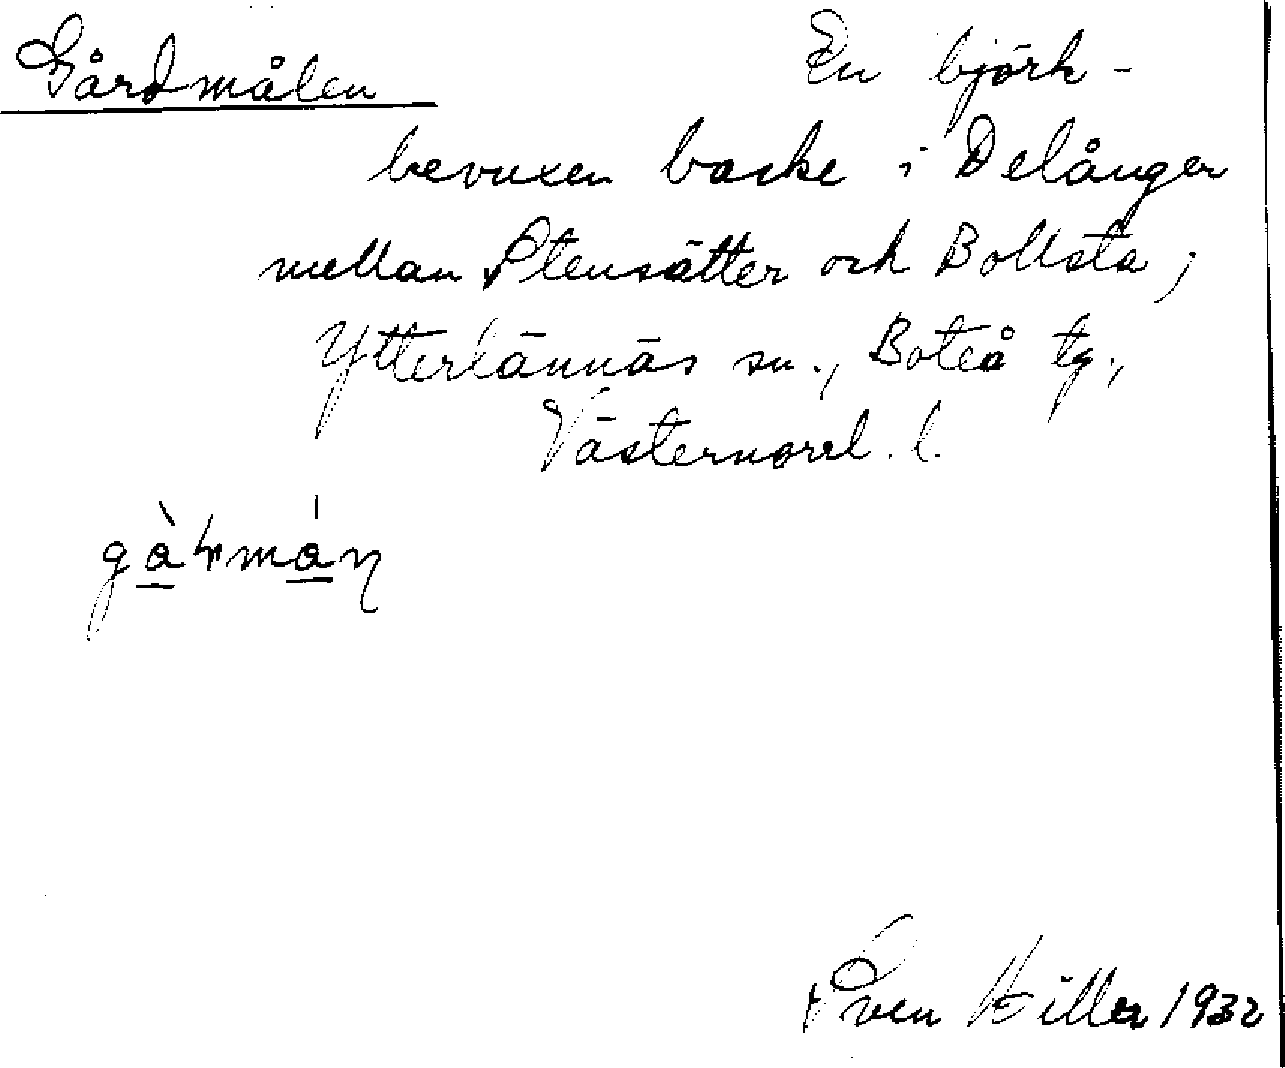 Gårdmålen En björk-
bevuxen backe i Delånger
mellan Stensätter och Bollsta,
Ytterlännäs sn., Boteå tg.,
Västernorrl. l.
Sven Hiller 1932